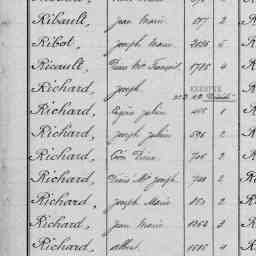 Ribault, Jean Marie 577 2
Ribot, Joseph Marie 2026 5
Ricault, Pierre Mie François 1785 4
Richard, Joseph
Richard, Eugène Julien 1
Richard, Joseph Julien 596 2
Richard, 706 2
Richard, Pierre Mie Joseph 720 2
Richard, Joseph Marie 850 2
Richard, Jean Marie 1062 3
Richard, Albert 1585 4